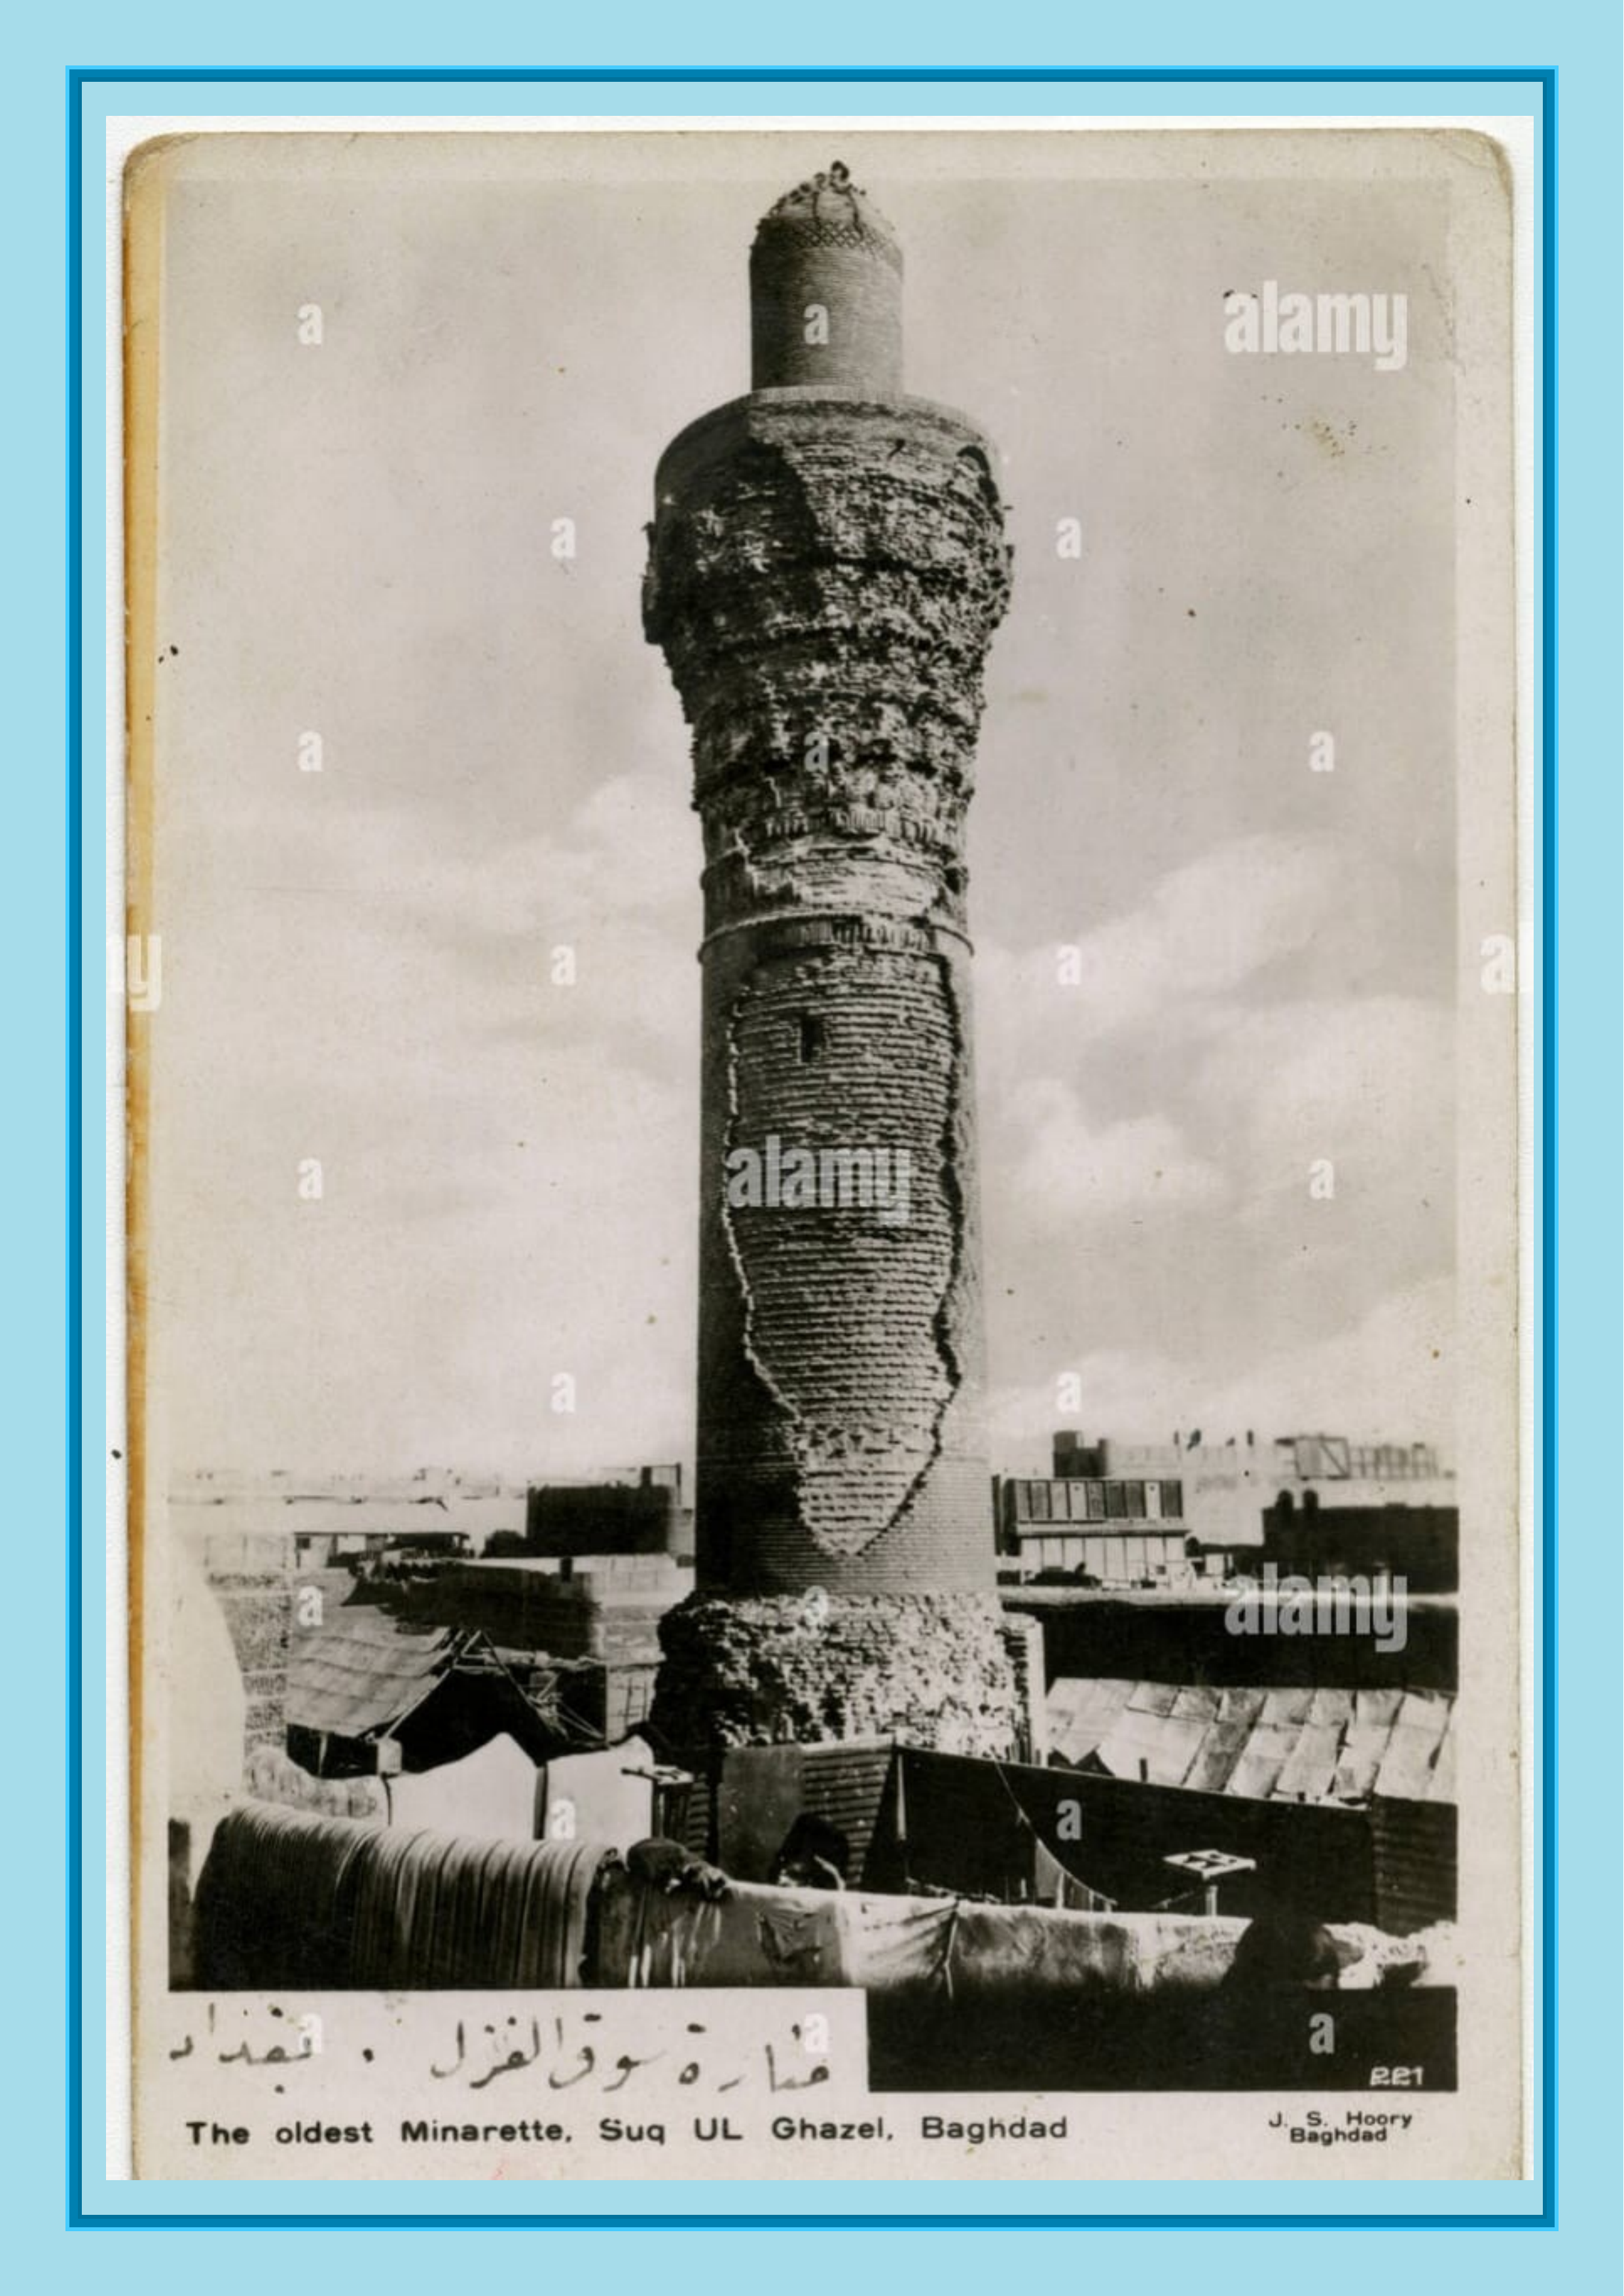 منارة سوق الغزل . بغداد
221
The oldest Minarette, Suq UL Ghazel, Baghdad
J. S. Hoory
Baghdad
alamy
alamy
alamy